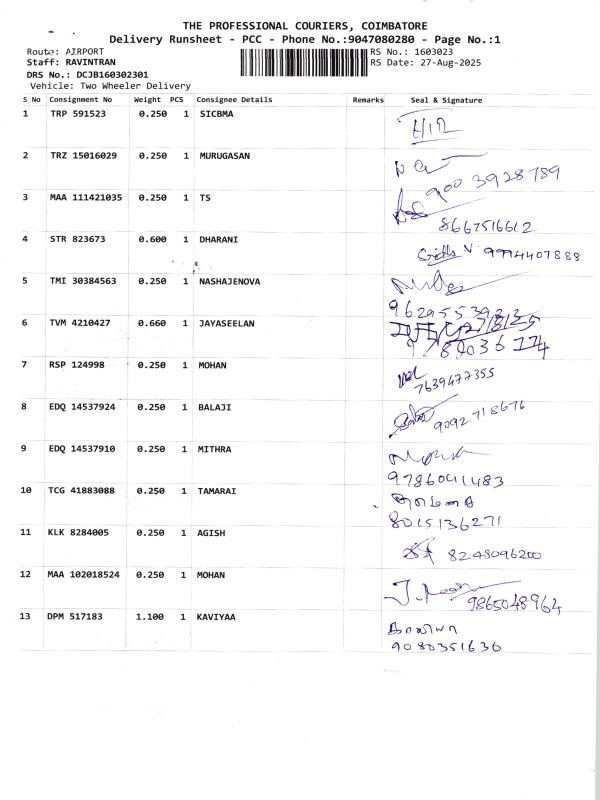 THE PROFESSIONAL COURIERS, COIMBATORE
Delivery Runsheet - PCC - Phone No.:9047080280 - Page No.:1
Route: AIRPORT RS No.: 1603023
Staff: RAVINTRAN RS Date: 27-Aug-2025
DRS No.: DCJB160302301
Vehicle: Two Wheeler Delivery
S No Consignment No Weight PCS Consignee Details Remarks Seal & Signature
1 TRP 591523 0.250 1 SICBMA
2 TRZ 15016029 0.250 1 MURUGASAN
900 3928789
3 MAA 111421035 0.250 1 TS
8667516612
4 STR 823673 0.600 1 DHARANI
9994407888
5 TMI 30384563 0.250 1 NASHAJENOVA
6 TVM 4210427 0.660 1 JAYASEELAN
7 RSP 124998 0.250 1 MOHAN
7639477355
8 EDQ 14537924 0.250 1 BALAJI
9092718676
9 EDQ 14537910 0.250 1 MITHRA
9786041483
10 TCG 41883088 0.250 1 TAMARAI
தாமரை
8015136271
11 KLK 8284005 0.250 1 AGISH
8248096200
12 MAA 102018524 0.250 1 MOHAN
9865048964
13 DPM 517183 1.100 1 KAVIYAA
காவியா
9080351636